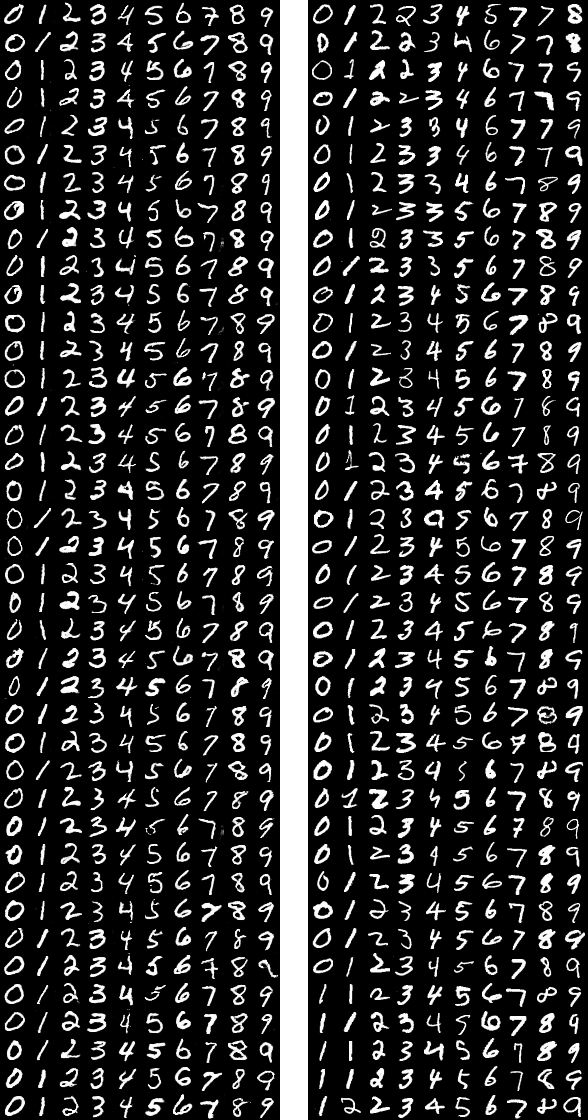 0 1 2 3 4 5 6 7 8 9
0 1 2 3 4 5 6 7 8 9
0 1 2 3 4 5 6 7 8 9
0 1 2 3 4 5 6 7 8 9
0 1 2 3 4 5 6 7 8 9
0 1 2 3 4 5 6 7 8 9
0 1 2 3 4 5 6 7 8 9
0 1 2 3 4 5 6 7 8 9
0 1 2 3 4 5 6 7 8 9
0 1 2 3 4 5 6 7 8 9
0 1 2 3 4 5 6 7 8 9
0 1 2 3 4 5 6 7 8 9
0 1 2 3 4 5 6 7 8 9
0 1 2 3 4 5 6 7 8 9
0 1 2 3 4 5 6 7 8 9
0 1 2 3 4 5 6 7 8 9
0 1 2 3 4 5 6 7 8 9
0 1 2 3 4 5 6 7 8 9
0 1 2 3 4 5 6 7 8 9
0 1 2 3 4 5 6 7 8 9
0 1 2 3 4 5 6 7 8 9
0 1 2 3 4 5 6 7 8 9
0 1 2 3 4 5 6 7 8 9
0 1 2 3 4 5 6 7 8 9
0 1 2 3 4 5 6 7 8 9
0 1 2 3 4 5 6 7 8 9
0 1 2 3 4 5 6 7 8 9
0 1 2 3 4 5 6 7 8 9
0 1 2 3 4 5 6 7 8 9
0 1 2 3 4 5 6 7 8 9
0 1 2 3 4 5 6 7 8 9
0 1 2 3 4 5 6 7 8 9
0 1 2 3 4 5 6 7 8 9
0 1 2 3 4 5 6 7 8 9
0 1 2 3 4 5 6 7 8 9
0 1 2 3 4 5 6 7 8 9
0 1 2 3 4 5 6 7 8 9
0 1 2 3 4 5 6 7 8 9
0 1 2 3 4 5 6 7 8 9
0 1 2 3 4 5 6 7 8 9
0 1 2 2 3 4 5 7 7 8
0 1 2 2 3 4 6 7 7 8
0 1 2 2 3 4 6 7 7 9
0 1 2 2 3 4 6 7 7 9
0 1 2 3 3 4 6 7 7 9
0 1 2 3 3 4 6 7 7 9
0 1 2 3 3 4 6 7 8 9
0 1 2 3 3 5 6 7 8 9
0 1 2 3 3 5 6 7 8 9
0 1 2 3 3 5 6 7 8 9
0 1 2 3 4 5 6 7 8 9
0 1 2 3 4 5 6 7 8 9
0 1 2 3 4 5 6 7 8 9
0 1 2 3 4 5 6 7 8 9
0 1 2 3 4 5 6 7 8 9
0 1 2 3 4 5 6 7 8 9
0 1 2 3 4 5 6 7 8 9
0 1 2 3 4 5 6 7 8 9
0 1 2 3 9 5 6 7 8 9
0 1 2 3 4 5 6 7 8 9
0 1 2 3 4 5 6 7 8 9
0 1 2 3 4 5 6 7 8 9
0 1 2 3 4 5 6 7 8 9
0 1 2 3 4 5 6 7 8 9
0 1 2 3 4 5 6 7 8 9
0 1 2 3 4 5 6 7 8 9
0 1 2 3 4 5 6 7 8 9
0 1 2 3 4 5 6 7 8 9
0 1 2 3 4 5 6 7 8 9
0 1 2 3 4 5 6 7 8 9
0 1 2 3 4 5 6 7 8 9
0 1 2 3 4 5 6 7 8 9
0 1 2 3 4 5 6 7 8 9
0 1 2 3 4 5 6 7 8 9
0 1 2 3 4 5 6 7 8 9
1 1 2 3 4 5 6 7 8 9
1 1 2 3 4 5 6 7 8 9
1 1 2 3 4 5 6 7 8 9
1 1 2 3 4 5 6 7 8 9
1 2 2 3 4 5 6 7 8 0